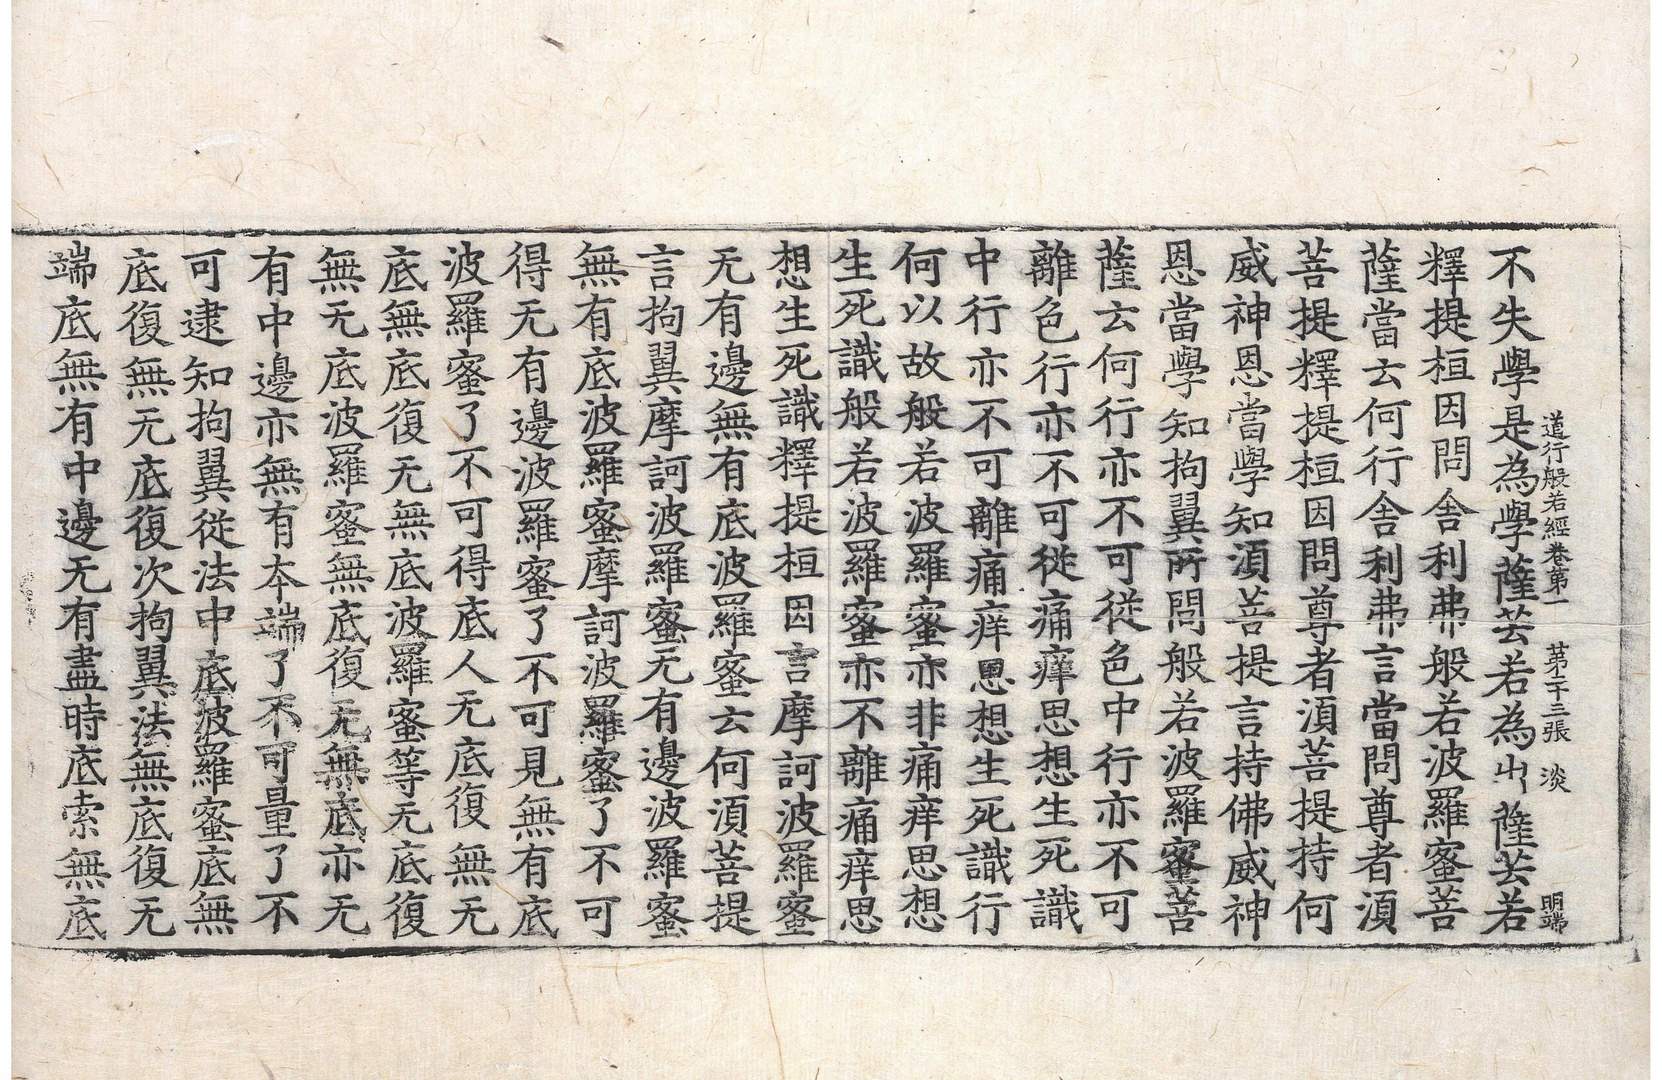 道行般若經卷第一 苐二十三張 淡 明端
不失學是為學薩芸若為出薩芸若
釋提桓因問舍利弗般若波羅蜜菩
薩當云何行舍利弗言當問尊者須
菩提釋提桓因問尊者須菩提持何
威神恩當學知須菩提言持佛威神
恩當學知拘翼所問般若波羅蜜菩
薩云何行亦不可從色中行亦不可
離色行亦不可從痛痒思想生死識
中行亦不可離痛痒思想生死識行
何以故般若波羅蜜亦非痛痒思想
生死識般若波羅蜜亦不離痛痒思
想生死識釋提桓因言摩訶波羅蜜
无有邊無有底波羅蜜云何須菩提
言拘翼摩訶波羅蜜无有邊波羅蜜
無有底波羅蜜摩訶波羅蜜了不可
得无有邊波羅蜜了不可見無有底
波羅蜜了不可得底人无底復無无
底無底復无無底波羅蜜等无底復
無无底波羅蜜無底復无無底亦无
有中邊亦無有本端了不可量了不
可逮知拘翼從法中底波羅蜜底無
底復無无底復次拘翼法無底復无
端底無有中邊无有盡時底索無底